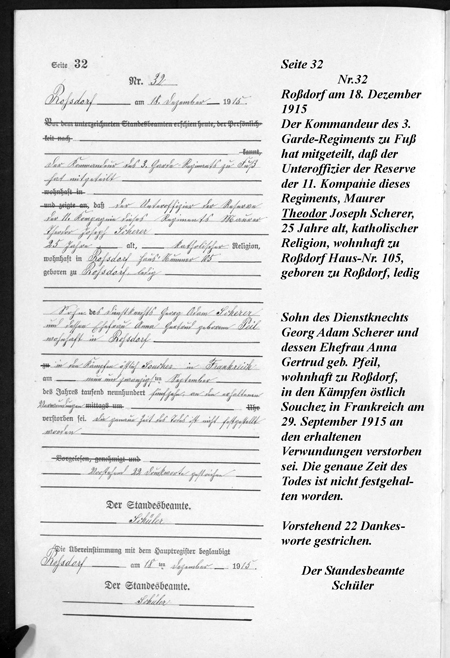 Seite 32
Nr. 32
Roßdorf am 18. Dezember 1915.
Vor dem unterzeichneten Standesbeamten erschien heute, der Persönlich-
keit nach
kannt,
der Kommandeur des 3. Garde Regiments zu Fuß
hat mitgeteilt
wohnhaft in
und zeigte an, daß der Unteroffizier der Reserve
der 11. Kompagnie dieses Regiments, Maurer
Theodor Joseph Scherer
25 Jahre alt, katholischer Religion,
wohnhaft in Roßdorf Haus Nummer 105
geboren zu Roßdorf, ledig
Sohn des Dienstknechts Georg Adam Scherer
und dessen Ehefrau Anna Gertrud geborenen Pfeil
wohnhaft in Roßdorf
zu in den Kämpfen östlich Souchez in Frankreich
am neunundzwanzigsten September
des Jahres tausend neunhundert fünfzehn an den erhaltenen
Verwundungen mittags um Uhr
verstorben sei. Die genaue Zeit des Todes ist nicht festgestellt
worden.
Vorgelesen, genehmigt und
Vorstehend 22 Druckworte gestrichen
Der Standesbeamte.
Schüler
Die Übereinstimmung mit dem Hauptregister beglaubigt
Roßdorf am 18 ten Dezember 1915.
Der Standesbeamte.
Schüler
Seite 32
Nr.32
Roßdorf am 18. Dezember
1915
Der Kommandeur des 3.
Garde-Regiments zu Fuß
hat mitgeteilt, daß der
Unteroffizier der Reserve
der 11. Kompanie dieses
Regiments, Maurer
Theodor Joseph Scherer,
25 Jahre alt, katholischer
Religion, wohnhaft zu
Roßdorf Haus-Nr. 105,
geboren zu Roßdorf, ledig
Sohn des Dienstknechts
Georg Adam Scherer und
dessen Ehefrau Anna
Gertrud geb. Pfeil,
wohnhaft zu Roßdorf,
in den Kämpfen östlich
Souchez in Frankreich am
29. September 1915 an
den erhaltenen
Verwundungen verstorben
sei. Die genaue Zeit des
Todes ist nicht festgehal-
ten worden.
Vorstehend 22 Dankes-
worte gestrichen.
Der Standesbeamte
Schüler